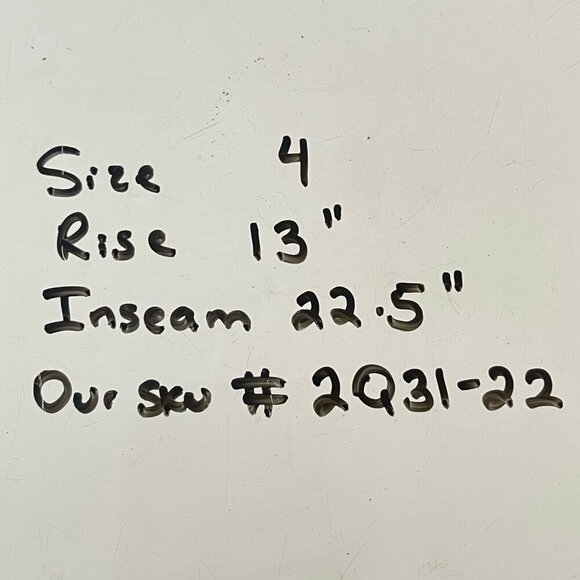 Size 4
Rise 13"
Inseam 22.5"
Our SKU # 2Q31-22